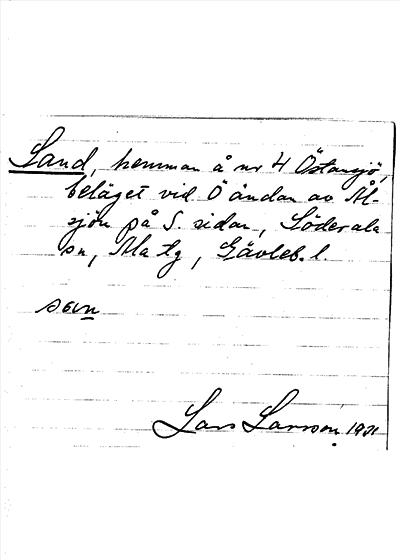 Sand, hemman å nr 4 Östansjö,
beläget vid Ö ändan av Ål-
sjön på S. sidan, Söderala
sn, Ala tg, Gävleb. l.
Lars Larsson 1931